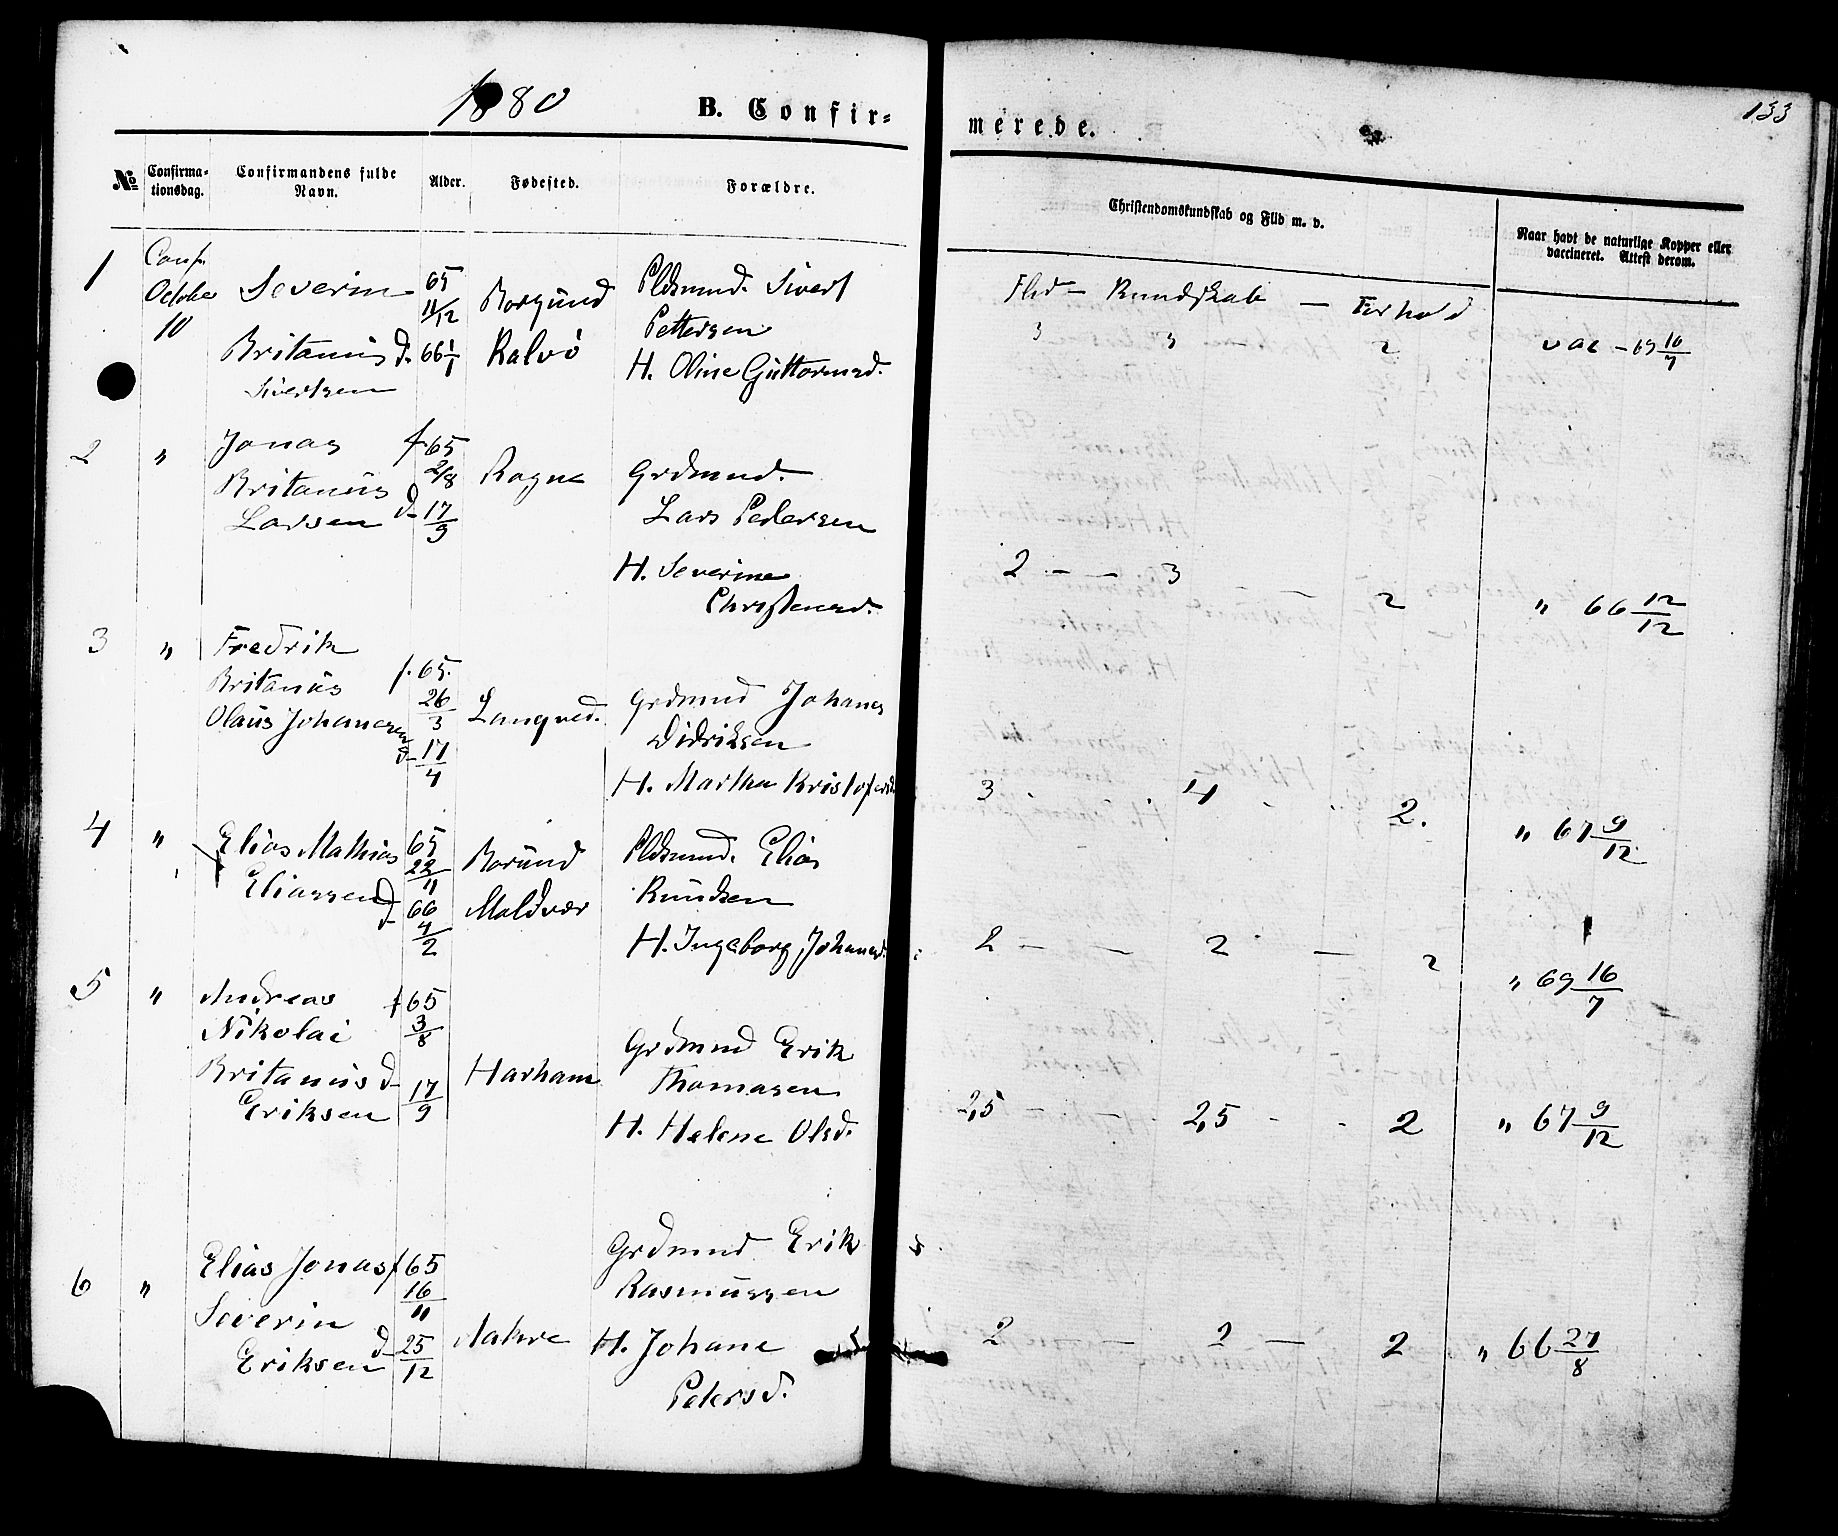 1880 B. Confir-
merede. 133
No Confirma-tionsdag. Confirmandens fulde Navn. Alder. Fødested. Forældre. Christendomskundskab og Flid m. v. Naar havt de naturlige Kopper eller vaccineret. Attest derom.
1 Conf. Severin 65 Borgund Pldsmd. Sivert Flid - Kundskab - Forhold
October 11/12 Pettersen 3 3 2 vac - 69 16/7
10 Britanus d. 66 1/1 Kalvö H. Oline Guttormsd.
Sivertsen
2 " Jonas f. 65 2/8 Rogne Grdmnd.
Britanus
Larsen d. 17/9 Lars Pedersen
H. Severine 2 - - 3
Christensd. 2 " 66 12/12
3 " Fredrik
Britanus f. 65. 26/3 Longved. Grdmnd Johanes
Olaus Johanesen d. 17/4 Didriksen
H. Martha Kristofersd 3 4 2. " 67 9/12
4 " Elias Mathias 65 22/11 Borund Pldsmnd. Elias
Eliassen d. 66 4/2 Moldvær Knudsen
H. Ingeborg Johanesd. 2 - - 2 - 2 " 69 16/7
5 " Andreas f 65 3/8
Nikolai Grdmnd Erik
Britanus d. 17/9 Harham Thomasen
Eriksen H. Helene Olsd. 2,5 - - 2,5 - 2 " 67 9/12
Grdmnd Erik
6 " Elias Jonas f 65 16/11 Rasmussen
Severin
Eriksen d. 25/12 Aakre H. Johane 2 - 2 - 2 " 66 27/8
Petersd.